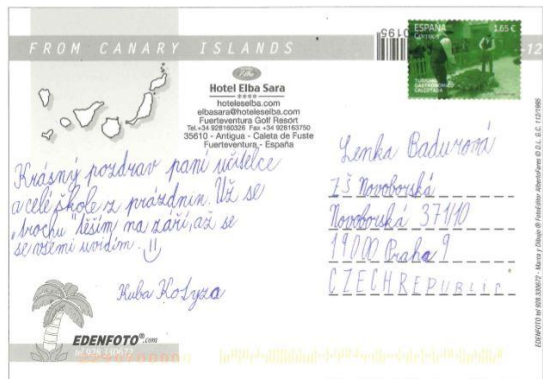 FROM CANARY ISLANDS
ESPAÑA
1,65€
TURISMO
GASTRONÓMICO
CALÇOTADA
0195
-12
Elba
Hotel Elba Sara
****
hoteleselba.com
elbasara@hoteleselba.com
Fuerteventura Golf Resort
Tel.+34 928160326 Fax +34 928163750
35610 - Antigua - Caleta de Fuste
Fuerteventura - España
Krásný pozdrav paní učitelce
a celé škole z prázdnin. Už se
"trochu" těším na září, až se
se všemi uvidím. :)
Kuba Kotyza
Lenka Badurová
ZŠ Novoborská
Novoborská 371/10
19000 Praha 9
CZECH REPUBLIC
EDENFOTO®.com
tel 928 330672
EDENFOTO tel 928 330672 - Marca y Dibujo ® FotoEditor AlbertoFares © D.L. G.C. 112/1995